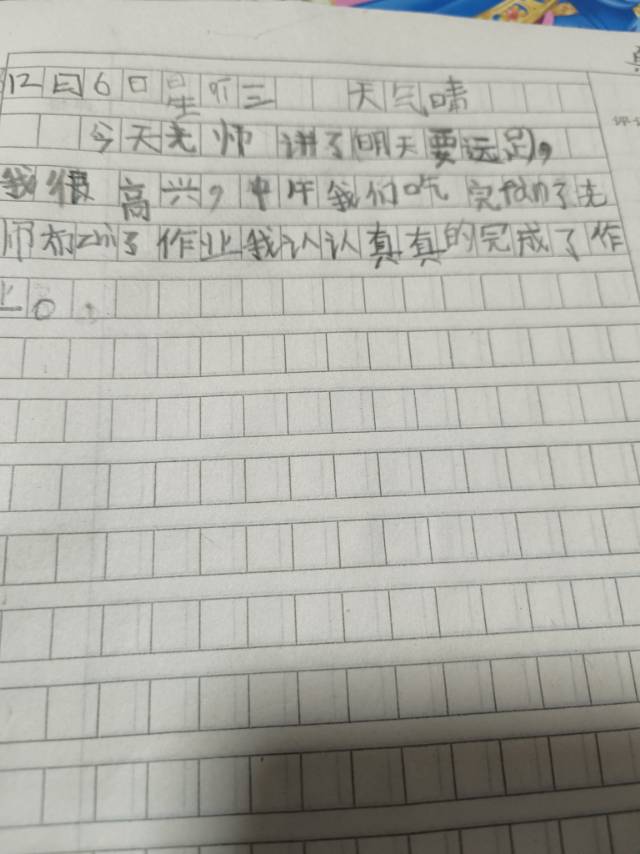 12月6日 星 三 天气晴
今天老师讲了明天要远足，
我很高兴，中午我们吃完fàn了老
师布zhì了作业我认认真真的完成了作
业。